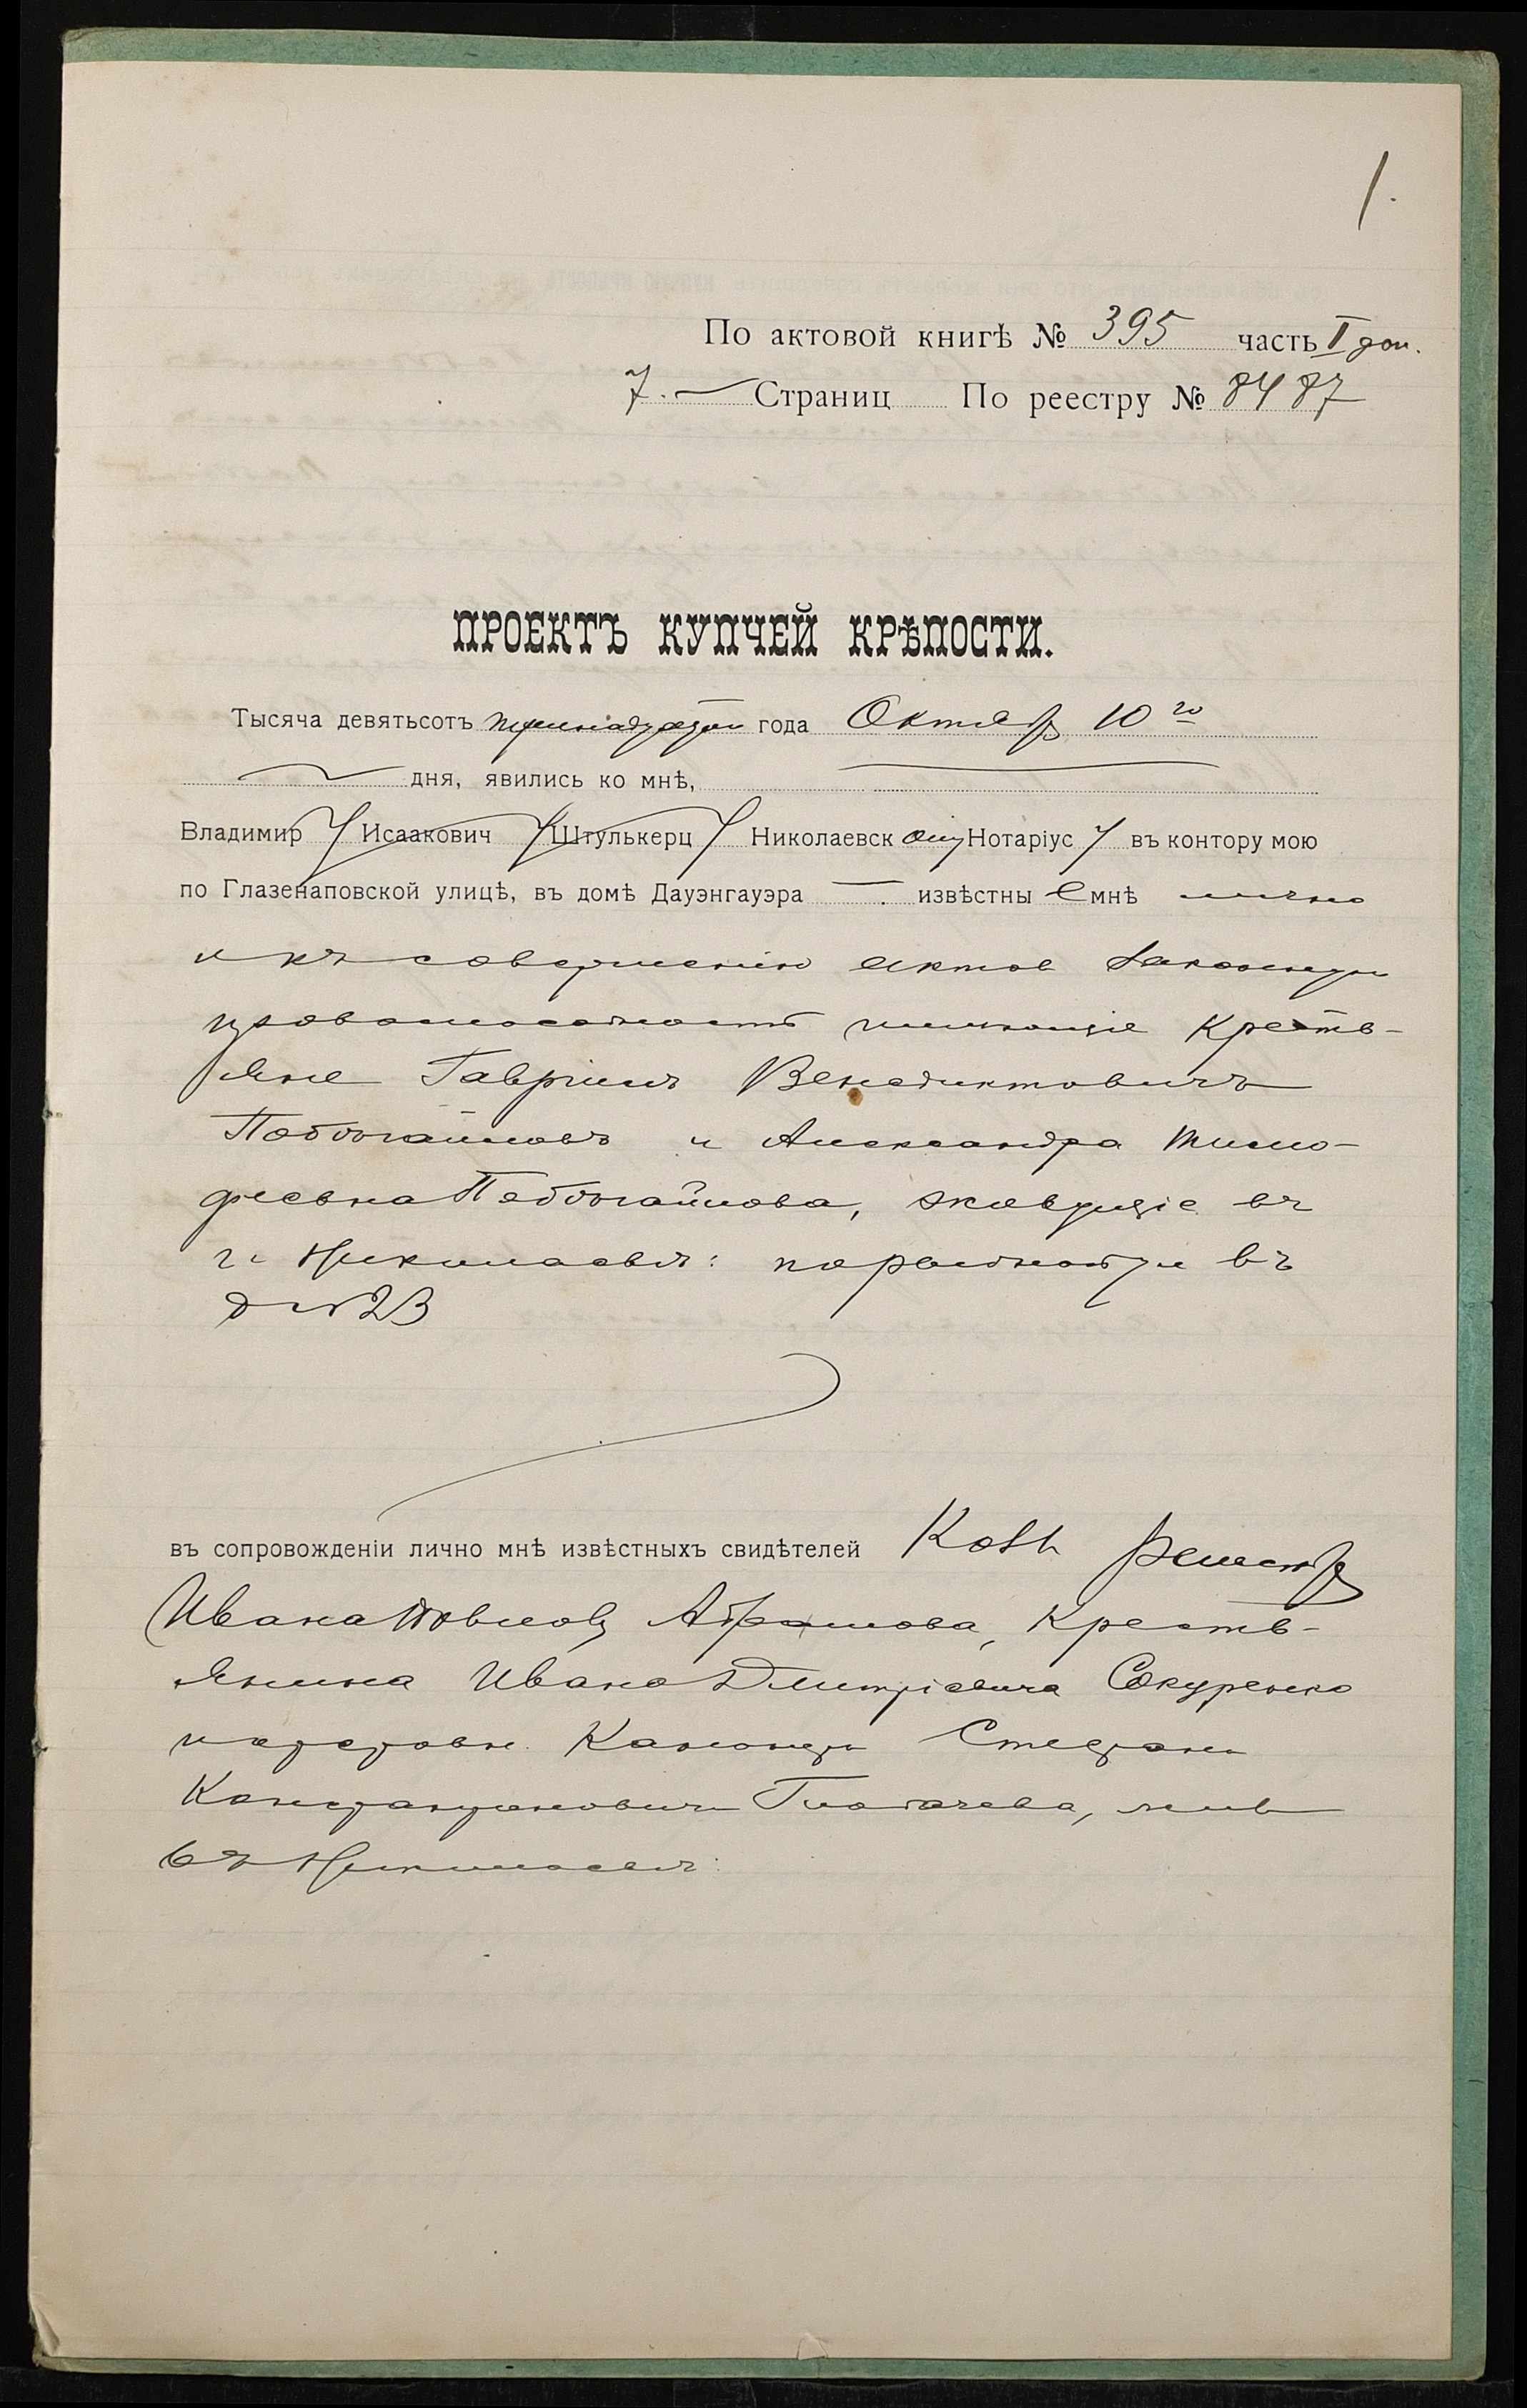 1.
По актовой книгѣ № 395 часть I доп.
7. Страниц По реестру № 8487
ПРОЕКТЪ КУПЧЕЙ КРѢПОСТИ.
Тысяча девятьсотъ тринадцатаго года Октября 10го
дня, явились ко мнѣ,
Владимир Исаакович Штулькерц Николаевск Нотаріус въ контору мою
по Глазенаповской улицѣ, въ домѣ Дауэнгауэра известны е мнѣ лично
и къ совершенію актов законную
правоспособность имѣющіе Кресть-
яне Гавріилъ Венедиктовичъ
и Александра Тимо-
феевна живущіе въ
г. Николаевѣ:
д № 23
въ сопровожденіи лично мнѣ извѣстныхъ свидѣтелей
Ивана Абрамова, Кресть-
янина Ивана Дмитріевича Сокуренко
Константиновича жив
въ Николаевѣ: